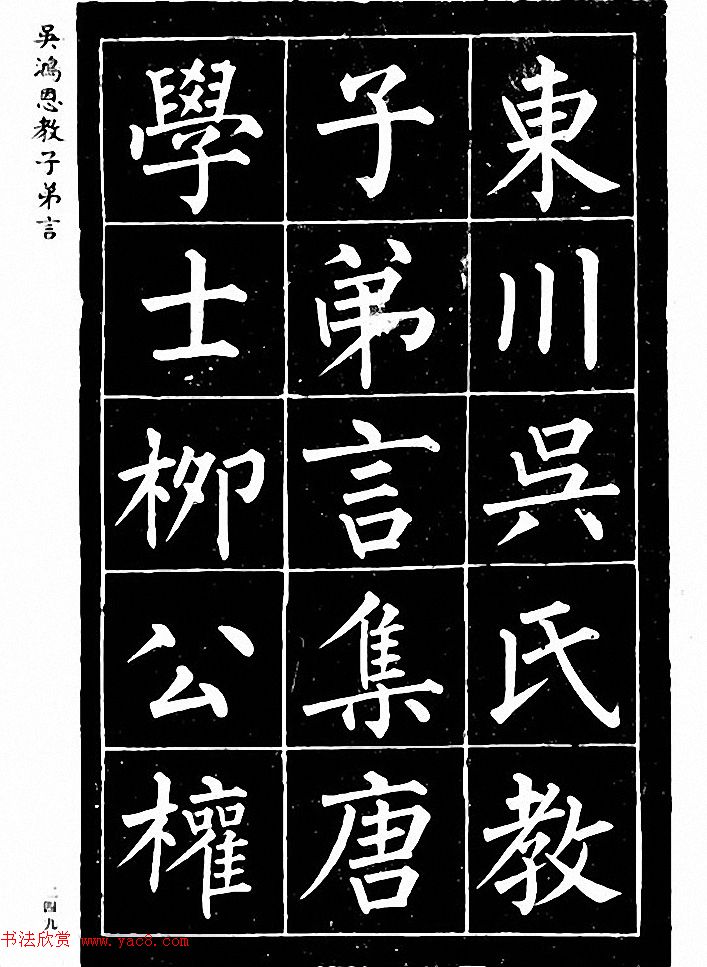 東川吳氏教
子弟言集唐
學士柳公權
吳鴻恩教子弟言
一四九
书法欣赏 www.yac8.com